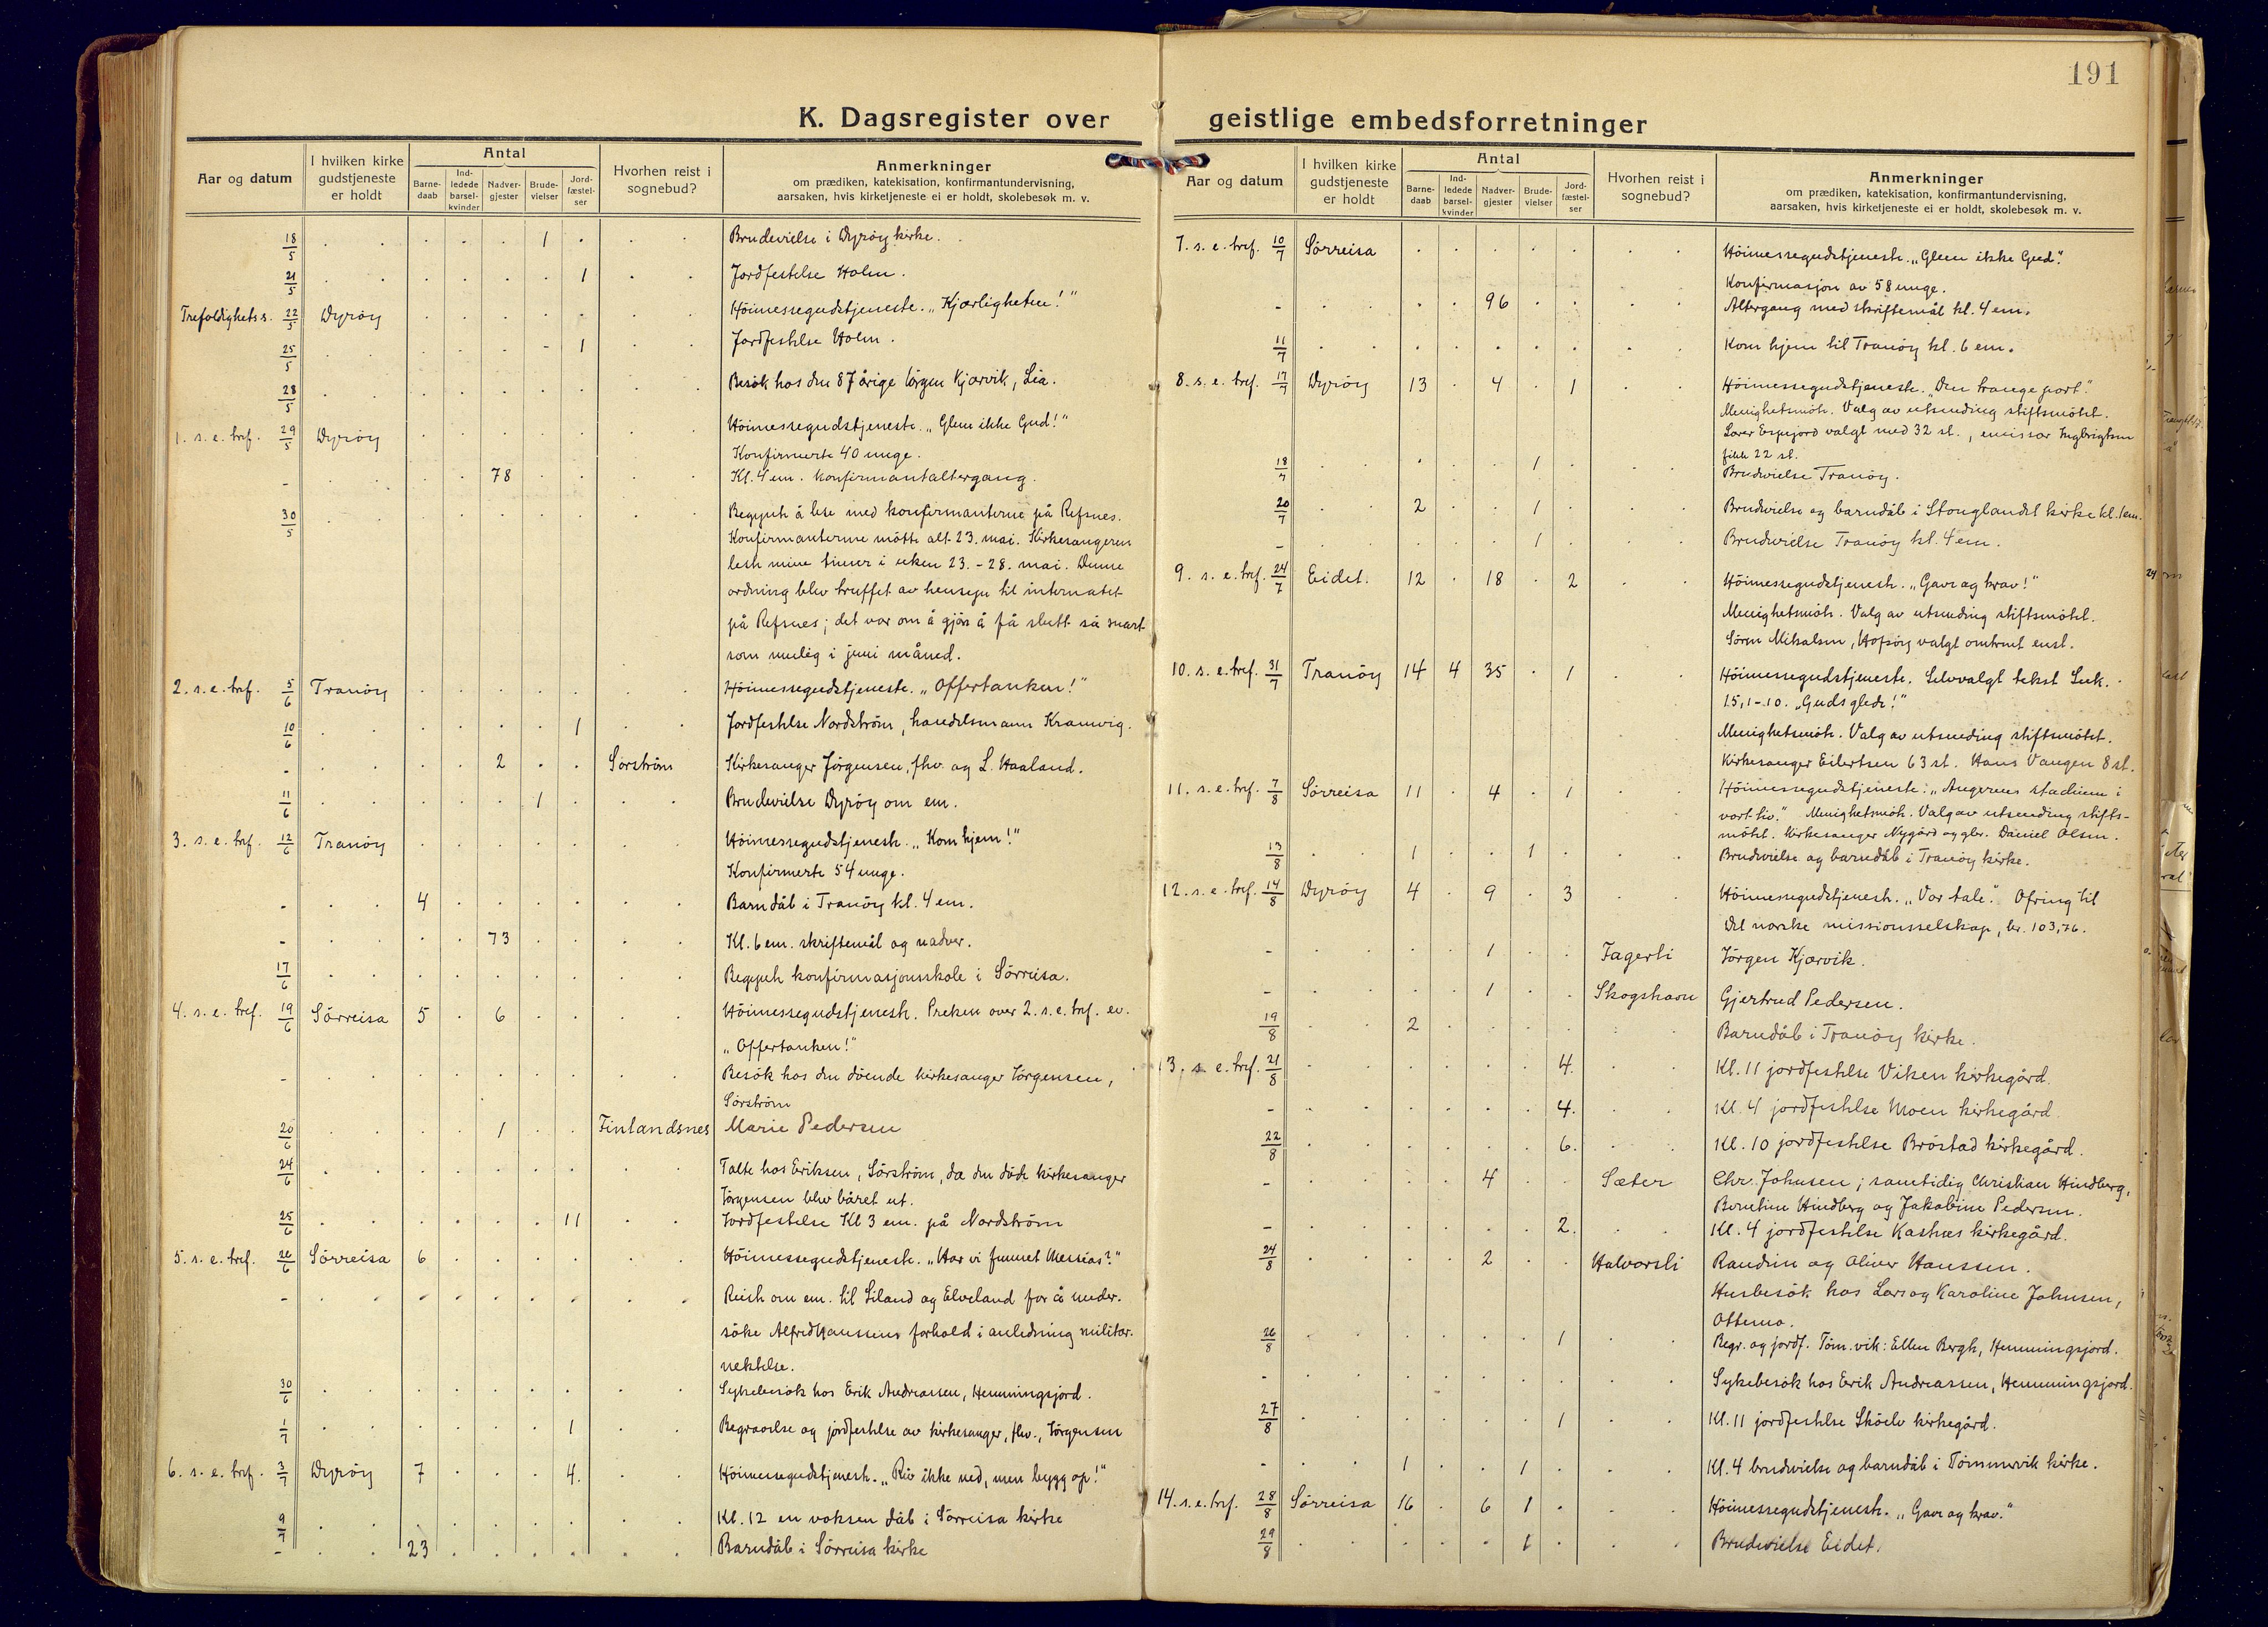 191
K. Dagsregister over geistlige embedsforretninger
Aar og datum
I hvilken kirke gudstjeneste er holdt
Antal
Barnedaab
Indledede barselkvinder
Nadvergjester
Brudevielser
Jordfæstelser
Hvorhen reist i sognebud?
Anmerkninger
om prædiken, katekisation, konfirmantundervisning,
aarsaken, hvis kirketjeneste ei er holdt, skolebesøk m. v.
18/5 1 Brudevielse i Dyröy kirke.
21/5 1 Jordfestelse Holm.
Trefoldighets s. 22/5 Dyröy Höimessegudstjeneste. „Kjærligheten!"
25/5 1 Jordfestelse Holm.
28/5 Besök hos den 87 årige Jörgen Kjærvik, Lia.
1. s. e. tref. 29/5 Dyröy Höimessegudstjeneste. „Glem ikke Gud!"
Konfirmerte 40 unge.
- 78 Kl. 4 em. konfirmantaltergang.
30/5 Begynte å lese med konfirmanterne på Refsnes.
Konfirmanterne mötte alt 23. mai. Kirkesangeren
leste mine timer i uken 23. - 28. mai. Denne
ordning blev truffet av hensyn til internatet
på Refsnes; det var om å gjöre å få slutt så snart
som mulig i juni måned.
2. s. e. tref. 5/6 Tranöy Höimessegudstjeneste. „Offertanken!"
10/6 1 Jordfestelse Nordström, handelsmann Kramvig.
- 2 Sörström Kirkesanger Jörgensen, fhv. og L. Haaland.
11/6 1 Brudevielse Dyröy om em.
3. s. e. tref. 12/6 Tranöy Höimessegudstjeneste. „Kom hjem!"
Konfirmerte 54 unge.
- 4 Barnedåb i Tranöy kl. 4 em.
- 73 Kl. 6 em. skriftemål og nadver.
17/6 Begynte konfirmasjonsskole i Sörreisa.
4. s. e. tref. 19/6 Sörreisa 5 6 Höimessegudstjeneste. Preken over 2. s. e. tref. ev.
„Offertanken!"
- Besök hos den döende kirkesanger Jörgensen,
Sörström
20/6 1 Finlandsnes Marie Pedersen
24/6 Talte hos Eriksen, Sörström, da den döde kirkesanger
Jörgensen blev båret ut.
25/6 11 Jordfestelse Kl 3 em. på Nordström
5. s. e. tref. 26/6 Sörreisa 6 Höimessegudstjeneste. „Har vi funnet Messias?"
- Reiste om em. til Liland og Elveland for å under-
söke Alfred Hanssens forhold i anledning militær-
nektelse.
30/6 Sykebesök hos Erik Andreassen, Hemmingsjord.
1/7 1 Begravelse og jordfestelse av kirkesanger, fhv., Jörgensen
6. s. e. tref. 3/7 Dyröy 7 4. Höimessegudstjeneste. „Riv ikke ned, men bygg op!"
9/7 Kl. 12 en voksen dåb i Sörreisa kirke
- 23 Barnedåb i Sörreisa kirke
Aar og datum
I hvilken kirke gudstjeneste er holdt
Antal
Barnedaab
Indledede barselkvinder
Nadvergjester
Brudevielser
Jordfæstelser
Hvorhen reist i sognebud?
Anmerkninger
om prædiken, katekisation, konfirmantundervisning,
aarsaken, hvis kirketjeneste ei er holdt, skolebesøk m. v.
7. s. e. tref. 10/7 Sörreisa Höimessegudstjeneste. „Glem ikke Gud".
Konfirmasjon av 58 unge.
- 96 Altergang med skriftemål kl. 4 em.
11/7 Kom hjem til Tranöy kl. 6 em.
8. s. e. tref. 17/7 Dyröy 13 4 1 Höimessegudstjeneste. „Den trange port".
Menighetsmöte. Valg av utsending stiftsmötet.
Lærer Espejord valgt med 32 st., emissær Ingbrigtsen
fikk 22 st.
18/7 1 Brudevielse Tranöy.
20/7 2 1 Brudevielse og barnedåb i Stonglandet kirke kl. 1 em.
- 1 Brudevielse Tranöy kl. 4 em.
9. s. e. tref. 24/7 Eidet. 12 18 2 Höimessegudstjeneste. „Gave og krav!"
Menighetsmöte. Valg av utsending stiftsmötet.
Sören Mikalsen, Hofsöy valgt omtrent enst.
10. s. e. tref. 31/7 Tranöy 14 4 35 1 Höimessegudstjeneste. Selvvalgt tekst Luk.
15,1-10. „Guds glede!"
Menighetsmöte. Valg av utsending stiftsmötet.
Kirkesanger Eilertsen 63 st. Hans Vangen 8 st.
11. s. e. tref. 7/8 Sörreisa 11 4 1 Höimessegudstjeneste: „Angerens stadium i
vort liv." Menighetsmöte. Valg av utsending stifts-
mötet. Kirkesanger Nygård og gbr. Daniel Olsen.
13/8 1 1 Brudevielse og barnedåb i Tranöy kirke.
12. s. e. tref. 14/8 Dyröy 4 9 3 Höimessegudstjeneste. „Vor tale". Ofring til
Det norske missionsselskap, kr. 103,76.
- 1 Fagerli Jörgen Kjærvik.
- 1 Skogshavn Gjertrud Pedersen.
19/8 2 Barnedåb i Tranöy kirke.
13. s. e. tref. 21/8 4. Kl. 11 jordfestelse Viken kirkegård.
- 4. Kl. 4 jordfestelse Moen kirkegård.
22/8 6. Kl. 10 jordfestelse Bröstad kirkegård.
- 4 Sæter Chr. Johnsen; samtidig Christian Hindberg,
Berntine Hindberg og Jakobine Pedersen.
- 2. Kl. 4 jordfestelse Kastnes kirkegård.
24/8 2 Halvorsli Randine og Oliver Hanssen.
Husbesök hos Lars og Karoline Johnsen,
Ottemo.
26/8 1 Begr. og jordf. Töm.vik: Ellen Bergh, Hemmingsjord.
- Sykebesök hos Erik Andreassen, Hemmingsjord.
27/8 1 Kl. 11 jordfestelse Sköelv kirkegård.
- 1 1 Kl. 4 brudevielse og barnedåb i Tömmervik kirke.
14. s. e. tref. 28/8 Sörreisa 16 6 1 Höimessegudstjeneste. „Gave og krav."
29/8 1 Brudevielse Eidet.